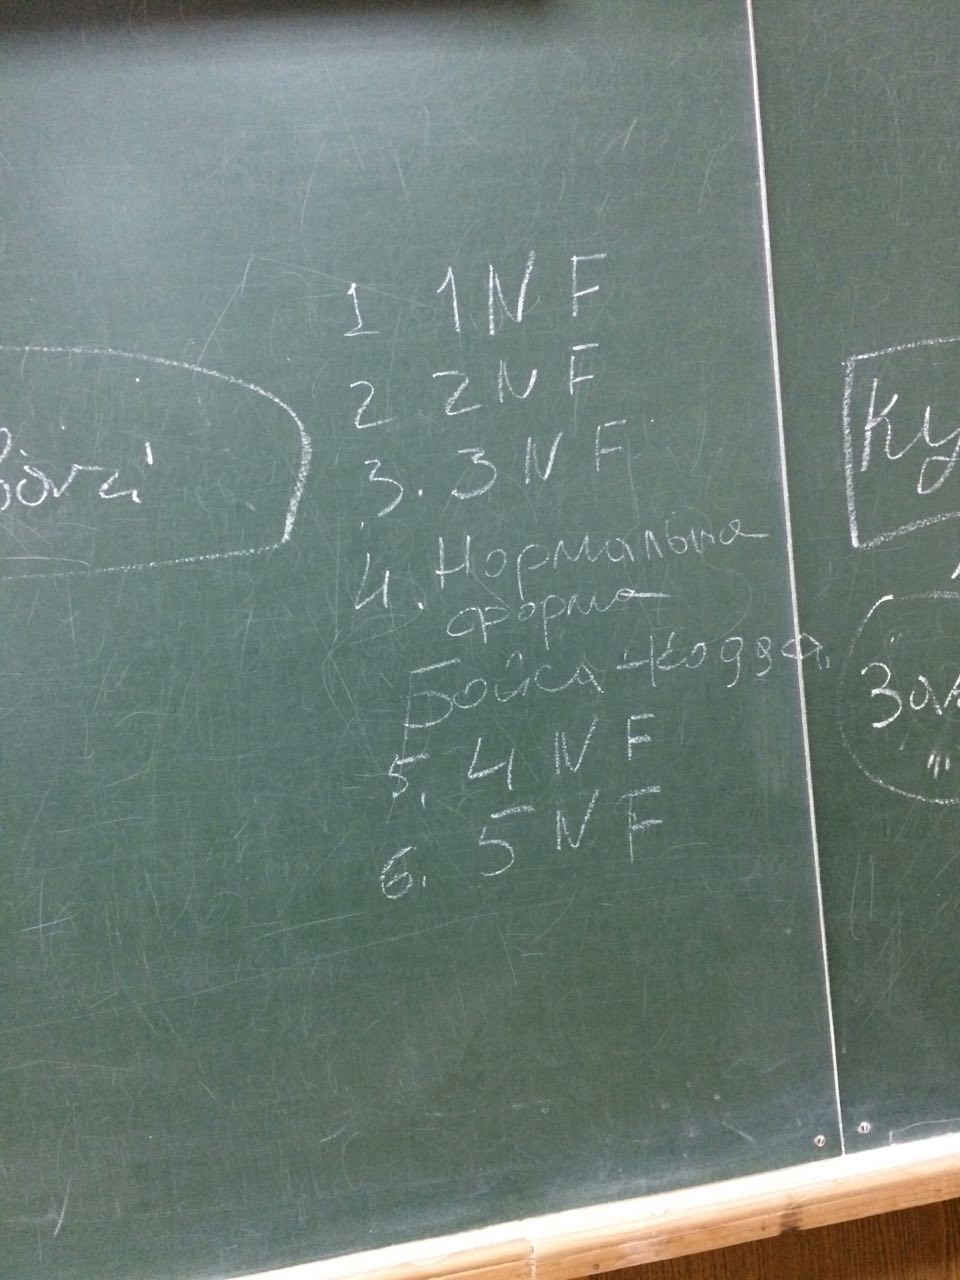 1 1NF
2. 2NF
3. 3NF
4. Нормальна
форма
Бойса-Кодда
5. 4NF
6. 5NF